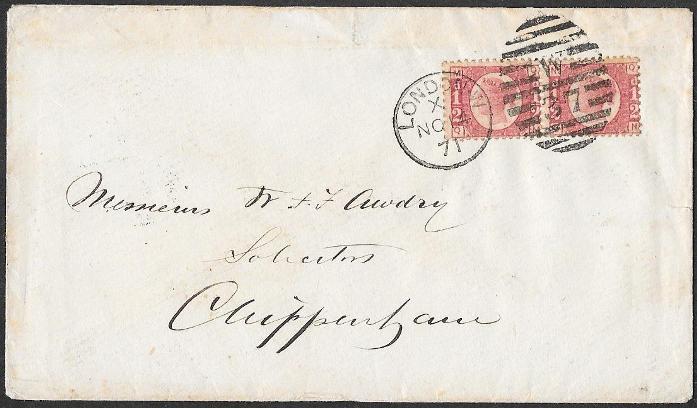 LONDON W
X
NO 4
71
W
37
Messieurs W & F Awdry
Solicitors
Chippenham